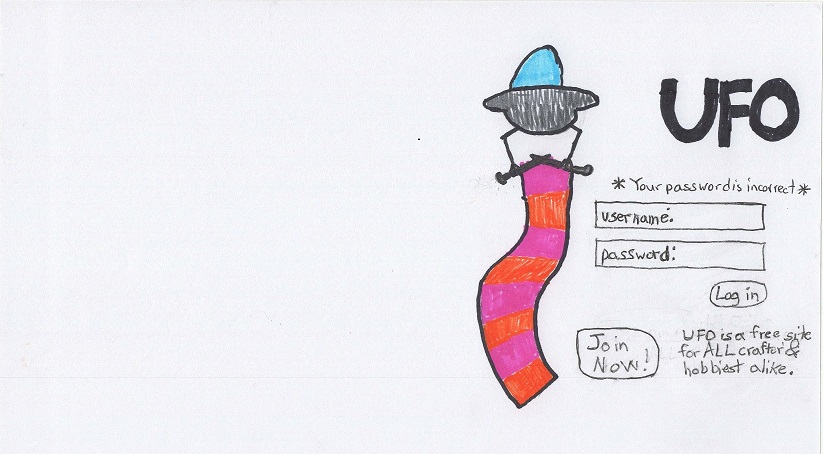 UFO
* Your password is incorrect *
username:
password:
Log in
Join
Now!
UFO is a free site
for ALL crafter's
hobbiest alike.